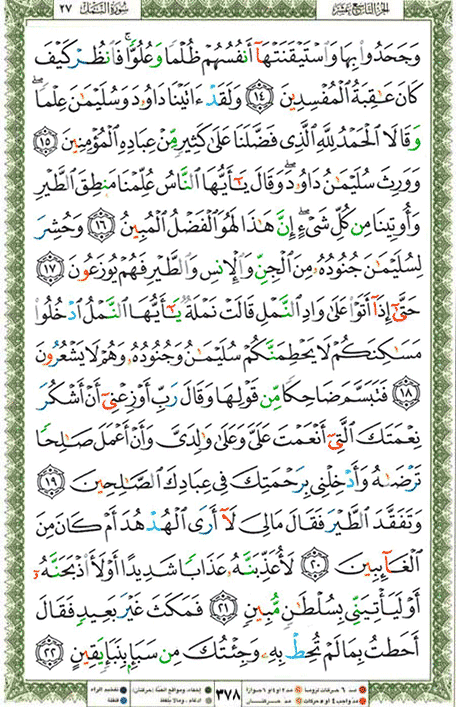 الجزء التاسع عشر
سورة النمل ٢٧
وَجَحَدُوا۟ بِهَا وَٱسْتَيْقَنَتْهَآ أَنفُسُهُمْ ظُلْمًا وَعُلُوًّا ۚ فَٱنظُرْ كَيْفَ
كَانَ عَـٰقِبَةُ ٱلْمُفْسِدِينَ ١٤ وَلَقَدْ ءَاتَيْنَا دَاوُۥدَ وَسُلَيْمَـٰنَ عِلْمًا ۖ
وَقَالَا ٱلْحَمْدُ لِلَّهِ ٱلَّذِى فَضَّلَنَا عَلَىٰ كَثِيرٍ مِّنْ عِبَادِهِ ٱلْمُؤْمِنِينَ ١٥
وَوَرِثَ سُلَيْمَـٰنُ دَاوُۥدَ ۖ وَقَالَ يَـٰٓأَيُّهَا ٱلنَّاسُ عُلِّمْنَا مَنطِقَ ٱلطَّيْرِ
وَأُوتِينَا مِن كُلِّ شَىْءٍ ۖ إِنَّ هَـٰذَا لَهُوَ ٱلْفَضْلُ ٱلْمُبِينُ ١٦ وَحُشِرَ
لِسُلَيْمَـٰنَ جُنُودُهُۥ مِنَ ٱلْجِنِّ وَٱلْإِنسِ وَٱلطَّيْرِ فَهُمْ يُوزَعُونَ ١٧
حَتَّىٰٓ إِذَآ أَتَوْا۟ عَلَىٰ وَادِ ٱلنَّمْلِ قَالَتْ نَمْلَةٌ يَـٰٓأَيُّهَا ٱلنَّمْلُ ٱدْخُلُوا۟
مَسَـٰكِنَكُمْ لَا يَحْطِمَنَّكُمْ سُلَيْمَـٰنُ وَجُنُودُهُۥ وَهُمْ لَا يَشْعُرُونَ
١٨ فَتَبَسَّمَ ضَاحِكًا مِّن قَوْلِهَا وَقَالَ رَبِّ أَوْزِعْنِىٓ أَنْ أَشْكُرَ
نِعْمَتَكَ ٱلَّتِىٓ أَنْعَمْتَ عَلَىَّ وَعَلَىٰ وَٰلِدَىَّ وَأَنْ أَعْمَلَ صَـٰلِحًا
تَرْضَىٰهُ وَأَدْخِلْنِى بِرَحْمَتِكَ فِى عِبَادِكَ ٱلصَّـٰلِحِينَ ١٩
وَتَفَقَّدَ ٱلطَّيْرَ فَقَالَ مَالِىَ لَآ أَرَى ٱلْهُدْهُدَ أَمْ كَانَ مِنَ
ٱلْغَآئِبِينَ ٢٠ لَأُعَذِّبَنَّهُۥ عَذَابًا شَدِيدًا أَوْ لَأَا۟ذْبَحَنَّهُۥٓ
أَوْ لَيَأْتِيَنِّى بِسُلْطَـٰنٍ مُّبِينٍ ٢١ فَمَكَثَ غَيْرَ بَعِيدٍ فَقَالَ
أَحَطتُ بِمَا لَمْ تُحِطْ بِهِۦ وَجِئْتُكَ مِن سَبَإٍۭ بِنَبَإٍ يَقِينٍ ٢٢
٣٧٨